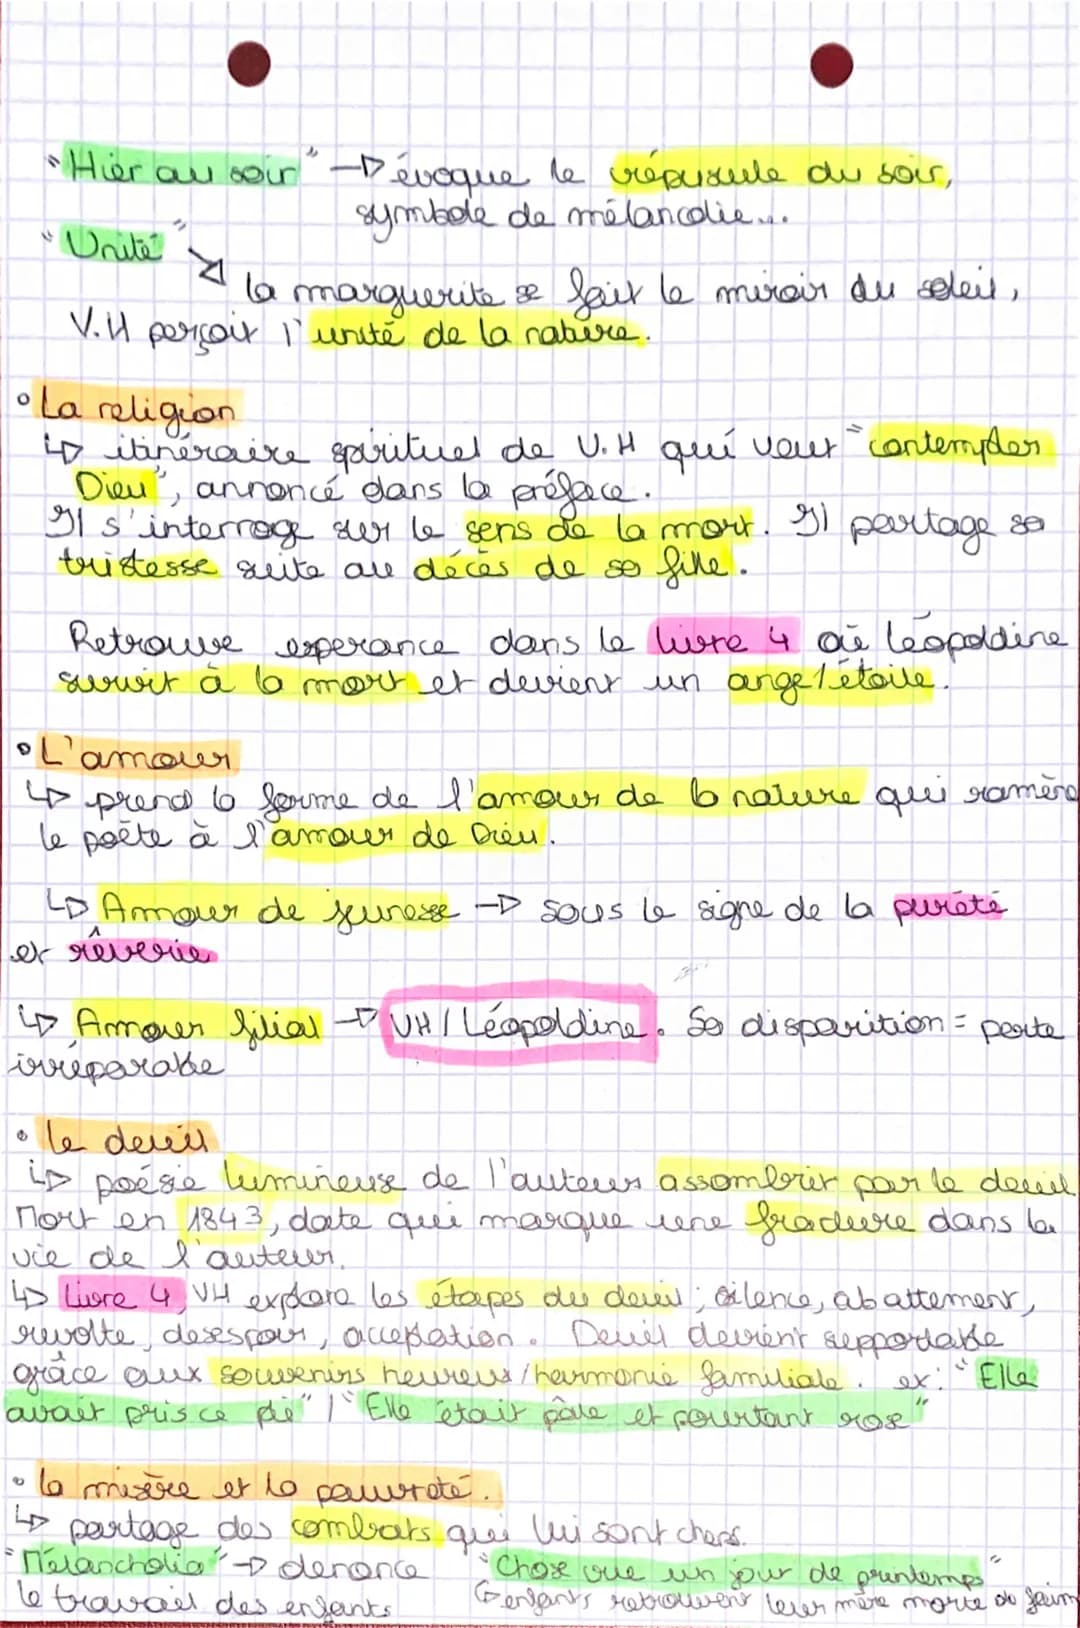 "Hier au soir" → évoque le crépuscule du soir,
symbole de mélancolie...
"Unité"
↘ la marguerite se fait le miroir du soleil,
V.H perçoit l'unité de la nature.
• La religion
↳ itinéraire spirituel de V.H qui veut "contempler
Dieu", annoncé dans la préface.
Il s'interroge sur le sens de la mort. Il partage sa
tristesse suite au décès de sa fille.
Retrouve esperance dans le livre 4 où Léopoldine
survit à la mort et devient un ange/étoile.
• L'amour
↳ prend la forme de l'amour de la nature qui ramène
le poète à l'amour de Dieu.
↳ Amour de jeunesse → sous le signe de la pureté
et rêverie
↳ Amour filial → VH/Léopoldine. Sa disparition = perte
irréparable
• le deuil
↳ poésie lumineuse de l'auteur assombrir par le deuil
Mort en 1843, date qui marque une fracture dans la
vie de l'auteur.
↳ Livre 4, VH explore les étapes du deuil ; silence, abattement,
révolte, desespoir, acceptation. Deuil devient supportable
grâce aux souvenirs heureux/harmonie familiale. ex: "Elle
avait pris ce pli" / "Elle était pâle et pourtant rose"
• la misère et la pauvreté.
↳ partage des combats qui lui sont chers.
"Mélancholia" → denonce "Chose vue un jour de printemps"
le travail des enfants ↳ enfants retrouvent leur mère morte de faim